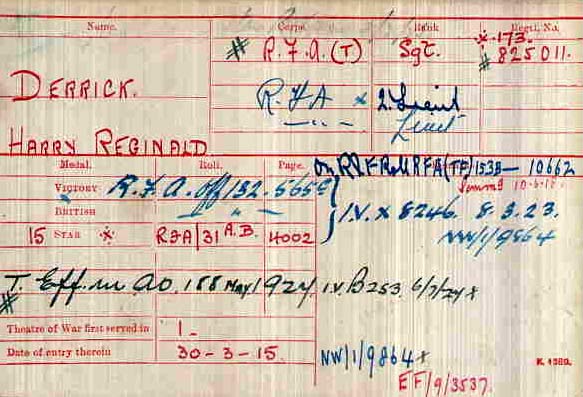 Name. Corps. Rank Regtl. No.
DERRICK. # R.F.A.(T) Sgt. * 173.
# 825011.
R.F.A × 2.Lieut
— " — Lieut
HARRY REGINALD
Medal. Roll. Page. On RRF Roll RFA(TF) 153B — 10662
VICTORY R.F.A. Off/132. 565e
BRITISH — " — I.V. × 8246. 8.3.23.
15 STAR * RFA/31 A.B. 4002 NW/1/9864
T. Eff. in AO. 188 May/1924 I.V. B253 6/7/24 x
#
Theatre of War first served in 1.
Date of entry therein 30-3-15. NW/1/9864 x
K. 1380.
EF/9/3537.